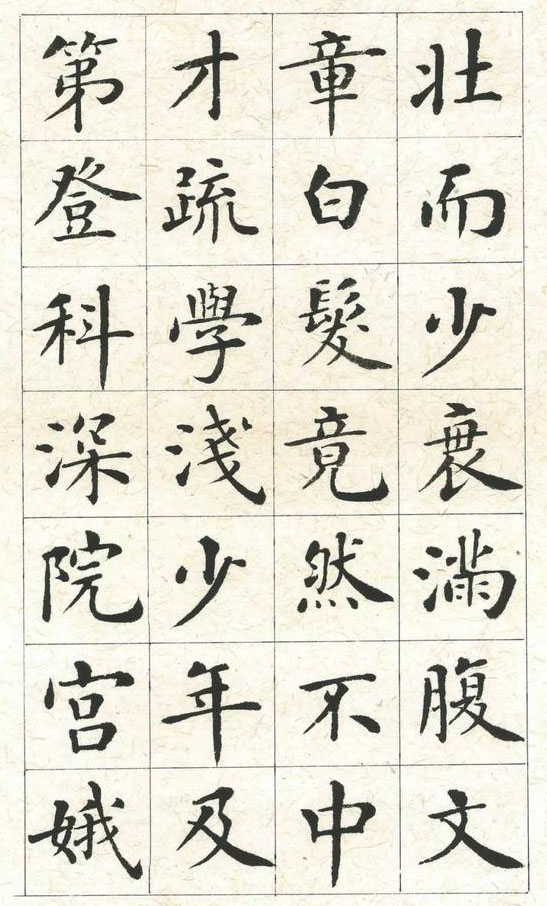 壯而少衰滿腹文
章白髮竟然不中
才疏學淺少年及
第登科深院宮娥